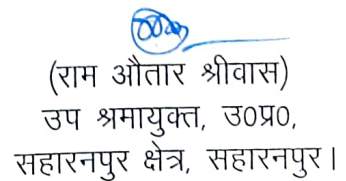 (राम औतार श्रीवास)
उप श्रमायुक्त, उ०प्र०,
सहारनपुर क्षेत्र, सहारनपुर।